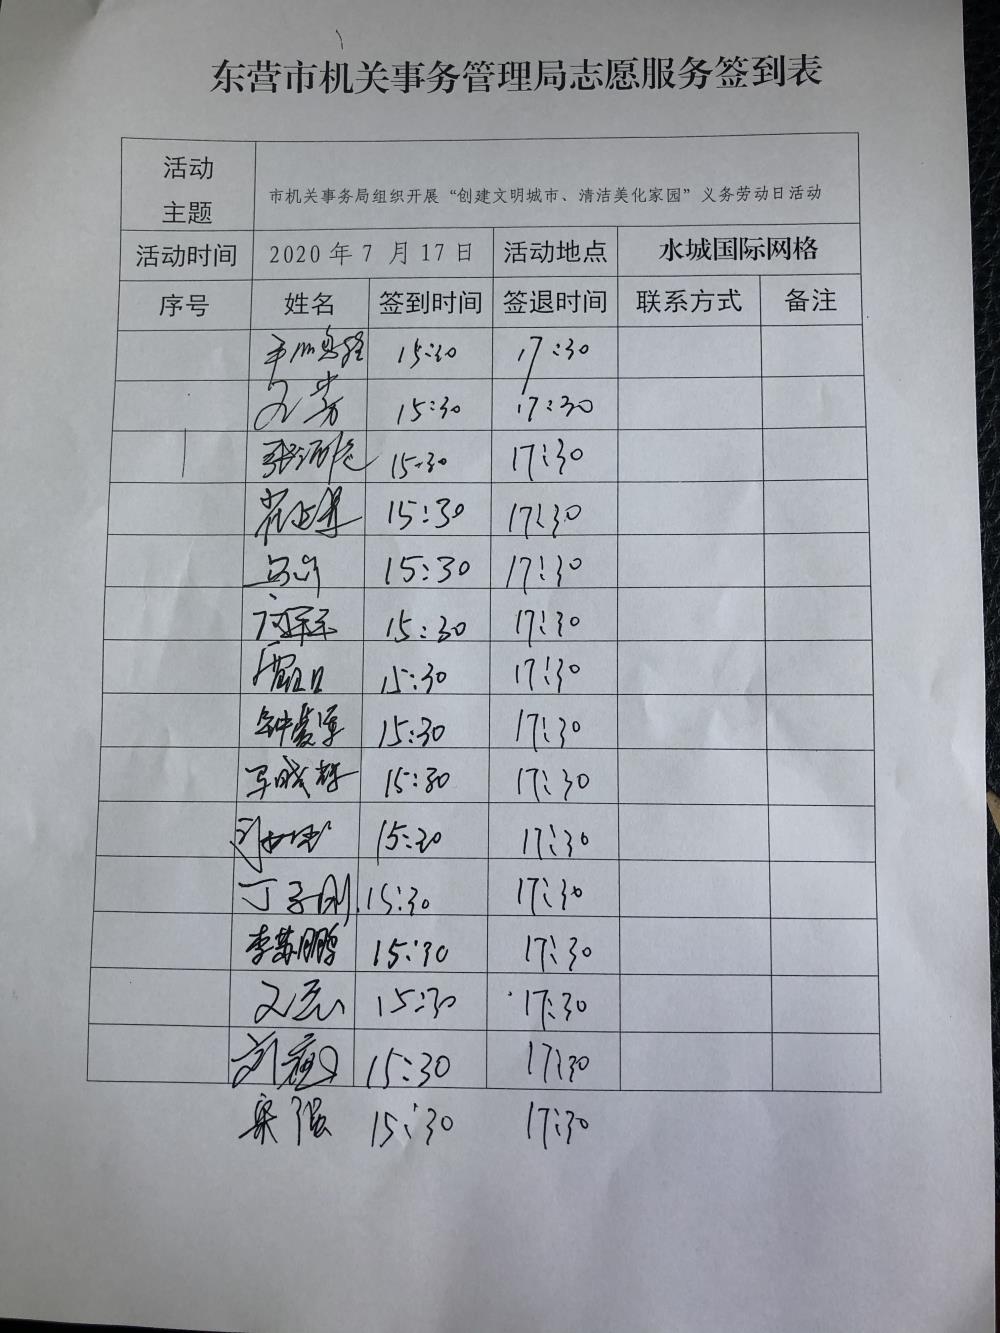 东营市机关事务管理局志愿服务签到表
活动
主题
市机关事务局组织开展“创建文明城市、清洁美化家园”义务劳动日活动
活动时间 2020年7月17日 活动地点 水城国际网格
序号 姓名 签到时间 签退时间 联系方式 备注
15:30 17:30
15:30 17:30
15:30 17:30
15:30 17:30
15:30 17:30
15:30 17:30
15:30 17:30
钟爱军 15:30 17:30
15:30 17:30
15:30 17:30
丁子刚 15:30 17:30
李苏鹏 15:30 17:30
15:30 17:30
15:30 17:30
梁强 15:30 17:30